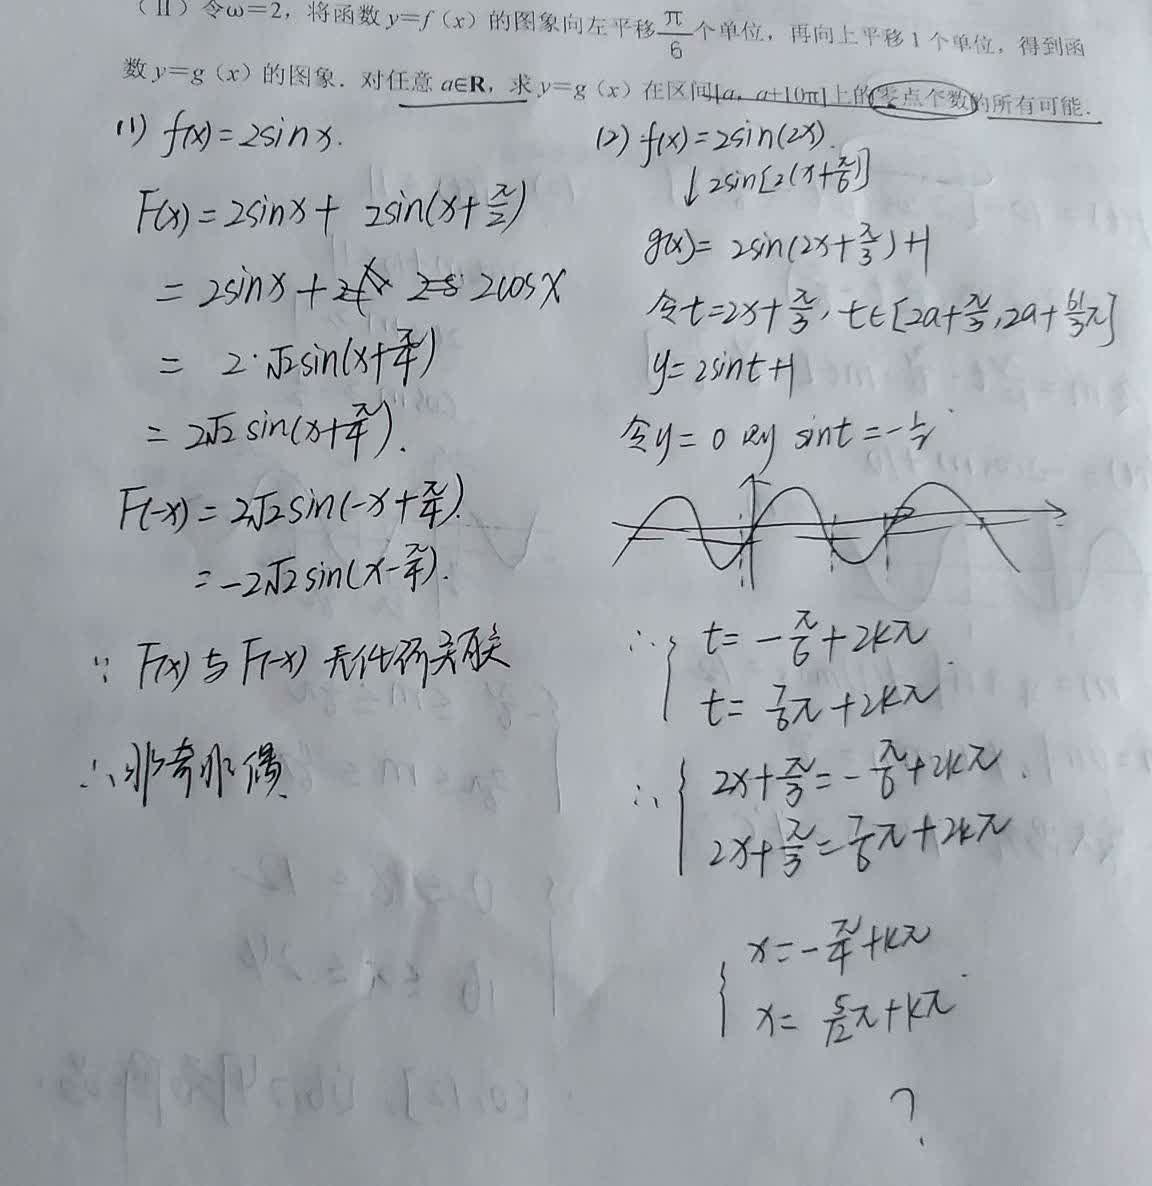 （Ⅱ）令ω=2，将函数 y=f（x）的图象向左平移π/6个单位，再向上平移 1 个单位，得到函
数 y=g（x）的图象．对任意 a∈R，求 y=g（x）在区间[a，a+10π]上的零点个数的所有可能．
(1) f(x)=2sinx.
F(x)=2sinx+ 2sin(x+π/2)
=2sinx+ 2cosx
= 2·√2sin(x+π/4)
=2√2 sin(x+π/4).
F(-x)=2√2sin(-x+π/4).
=-2√2sin(x-π/4).
∵ F(x)与F(-x) 无任何关联
∴非奇非偶.
(2) f(x)=2sin(2x).
↓2sin[2(x+π/6)]
g(x)= 2sin(2x+π/3)+1
令t=2x+π/3, t∈[2a+π/3,2a+61/3π]
y=2sint+1
令y=0 则 sint=-1/2
∴{ t=-π/6+2kπ
t=7/6π+2kπ
∴{ 2x+π/3=-π/6+2kπ.
2x+π/3=7/6π+2kπ
{ x=-π/4+kπ
x= 5/12π+kπ
?